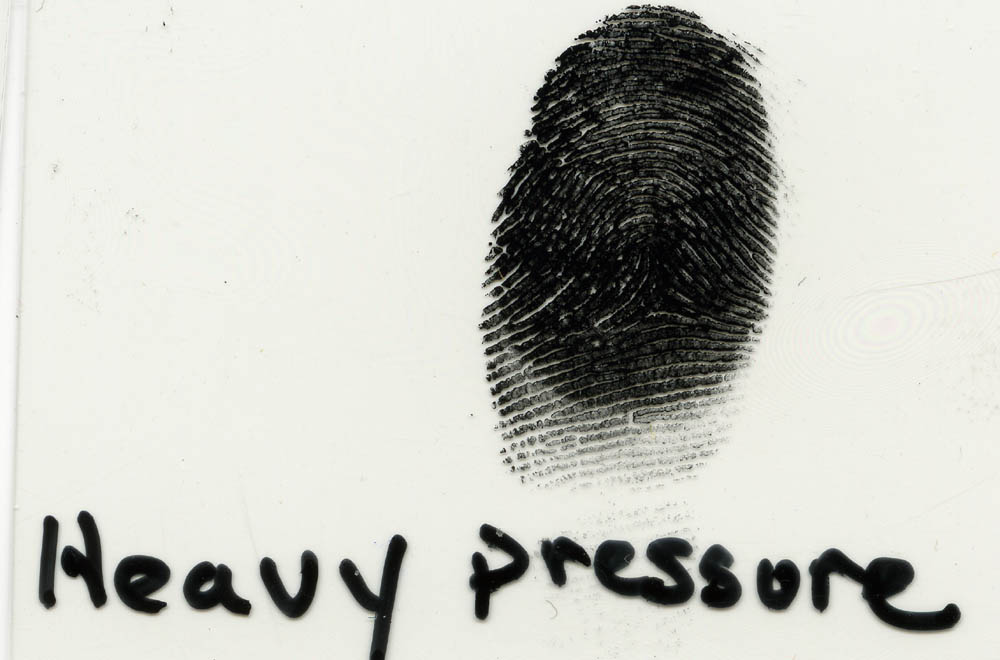 Heavy pressure